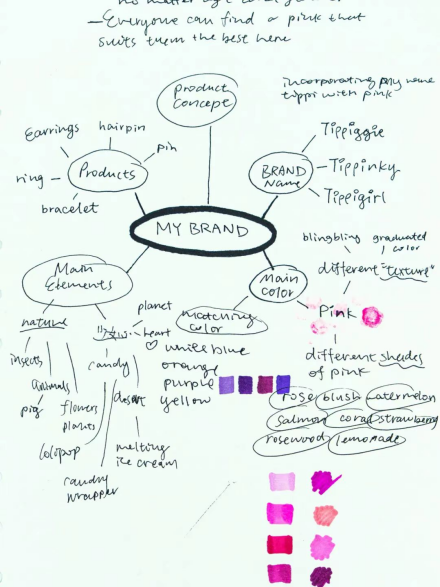 no matter age
—Everyone can find a pink that
suits them the best here
product
concept
incorporating my name
tippi with pink
Earrings
hairpin
pin
Products
ring
bracelet
BRAND
Name
Tippiggie
Tippinky
Tippigirl
MY BRAND
Main
Elements
Main
color
matching
color
blingbling
graduated
color
different "texture"
Pink
different shades
of pink
nature
planet
heart
insects
animals
pig
flowers
plants
candy
desert
lolipop
candy
wrapper
melting
ice cream
white blue
orange
purple
yellow
rose
blush
watermelon
Salmon
coral
strawberry
rosewood
lemonade